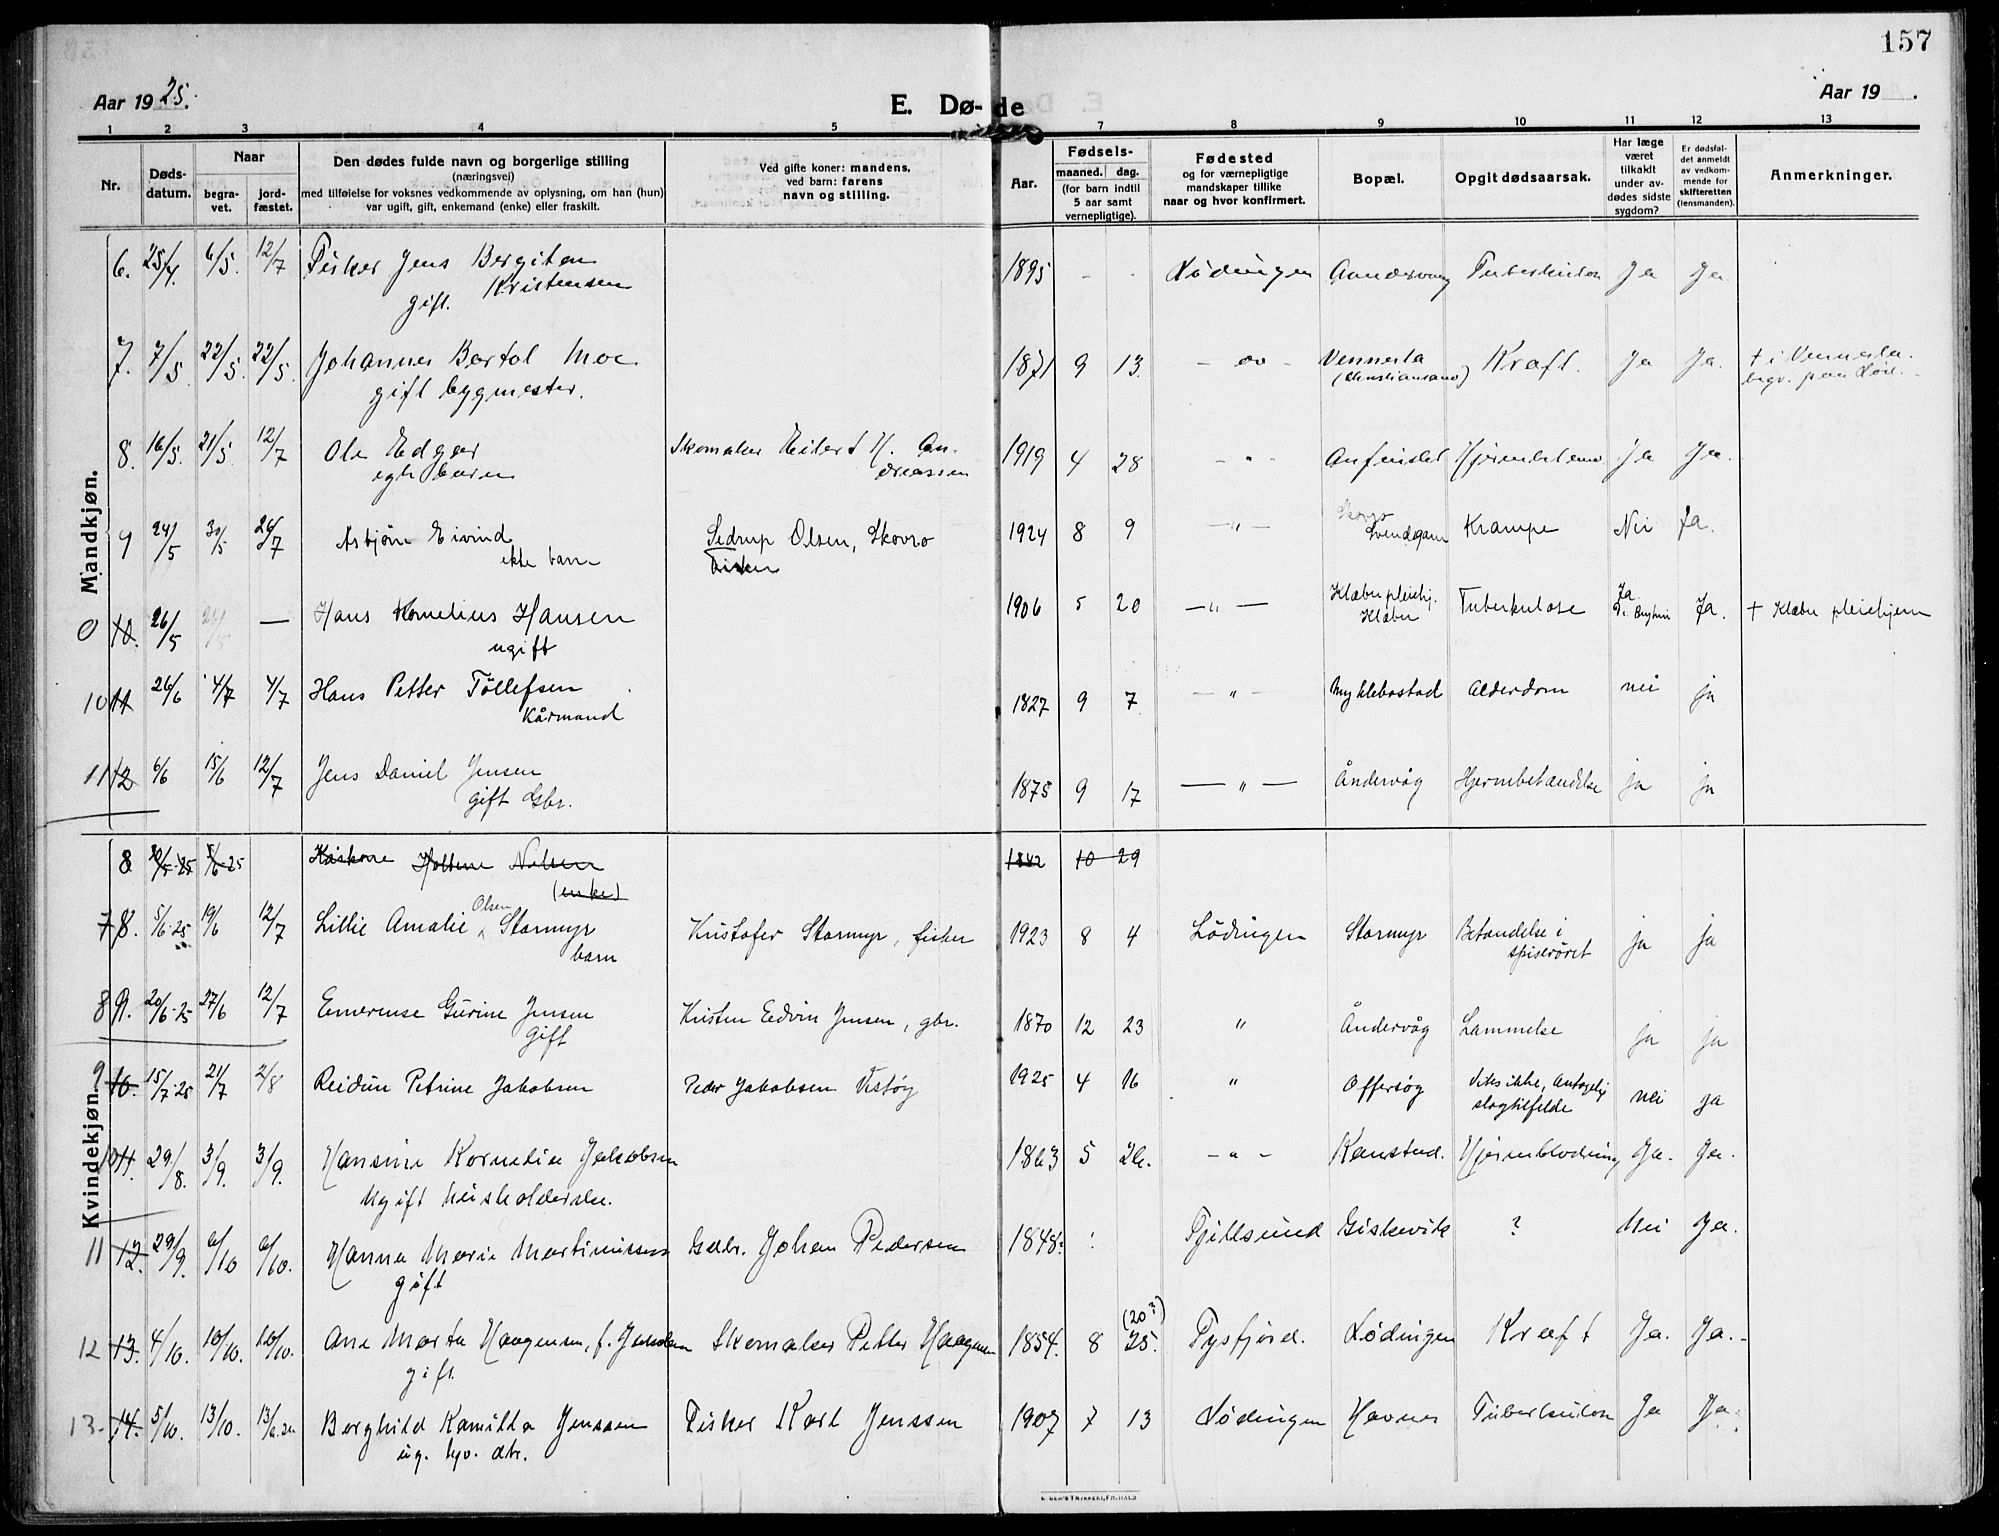 157
Aar 1925.
E. Dø-de
Aar 19 .
1 2 3 4 5 7 8 9 10 11 12 13
Nr.
Døds-
datum.
Naar
begra-
vet.
jord-
fæstet.
Den dødes fulde navn og borgerlige stilling
(næringsvei)
med tilføielse for voksnes vedkommende av oplysning, om han (hun)
var ugift, gift, enkemand (enke) eller fraskilt.
Ved gifte koner: mandens,
ved barn: farens
navn og stilling.
Aar.
Fødsels-
maaned. dag.
(for barn indtil
5 aar samt
vernepligtige).
Fødested
og for værnepligtige
mandskaper tillike
naar og hvor konfirmert.
Bopæl.
Opgit dødsaarsak.
Har læge
været
tilkaldt
under av-
dødes sidste
sygdom?
Er dødsfal-
det anmeldt
av vedkom-
mende for
skifteretten
(lensmanden).
Anmerkninger.
Mandkjøn.
6. 25/4. 6/5. 12/7 Fisker Jens Bergiton 1895 - - Lødingen Aandervaag Tuberkulose Ja Ja
Kristensen
gift.
7. 7/5 22/5. 22/5. Johannes Bertol Moe 1871 9 13. - do - Vennesla Kræft. Ja Ja. + i Vennesla.
gift bygmester. (Christiansand) begr. paa Lød.
8. 16/5. 21/5 12/7 Ole Edgar Skomaker Eilert H. An- 1919 4 28 - " - Ja Ja.
egte barn dreassen
9 24/5 30/5 26/7 Asbjørn Eivind Sedrup Olsen, Skovro 1924 8 9 - " - Skovro Krampe Nei Ja.
ekte barn Fisker
0 10. 26/5 — Hans Kornelius Hansen 1906 5 20 - " - Klæbu pleiehj. Tuberkulose Ja. Ja. + Klæbu pleiehjem
ugift Klæbu
10 11 26/6 4/7 4/7 Hans Petter Tollefsen 1827 9 7 - " - Myklebostad Alderdom nei ja
Kårmand
11 12 6/6 15/6 12/7 Jens Daniel Jensen 1875 9 17 - " - Åndervåg Hjernebetændelse ja ja
gift Gbr.
Kvindekjøn.
8 5/6-25 Nilsen 1842 10 29
(enke)
7 8. 5/6-25 19/6 12/7 Lillie Amalie Olsen Stormyr Kristofer Stormyr, fisker 1923 8 4 Lødingen Stormyr Betændelse i ja ja
barn spiserøret
8 9. 20/6-25 27/6 12/7 Emerense Gurine Jensen Kristen Edvin Jensen, gbr. 1870 12 23 " Åndervåg Lammelse ja ja
gift
9 10. 15/7-25 21/7 2/8 Reidun Petrine Jakobsen Peder Jakobsen 1925 4 16 " Offersøy Vites ikke, Antagelig nei ja
slagtilfelde
10 11. 29/8. 3/9. 3/9. Hansine Kornelie Jakobsen 1863 5 26. - " - Kanstad. Hjerneblødning Ja. Ja.
Ugift husholderske.
11 12. 29/9. 6/10 6/10. Hanna Marie Martinussen Gdbr. Johan Pedersen 1848. Tjeldsund Giskevik ? Nei Ja.
gift
12 13. 4/10. 10/10. 10/10. Ane Marta Haagensen, f. Jensen Skomaker Petter Haagensen 1854. 8 25. (20?) Tysfjord. Lødingen Kræft Ja. Ja.
gift.
13. 14. 5/10. 13/10. Borghild Kamilla Jenssen Fisker Karl Jenssen 1907 7 13 Lødingen Havnes Tuberkulose Ja Ja.
ug. hjv. dtr.